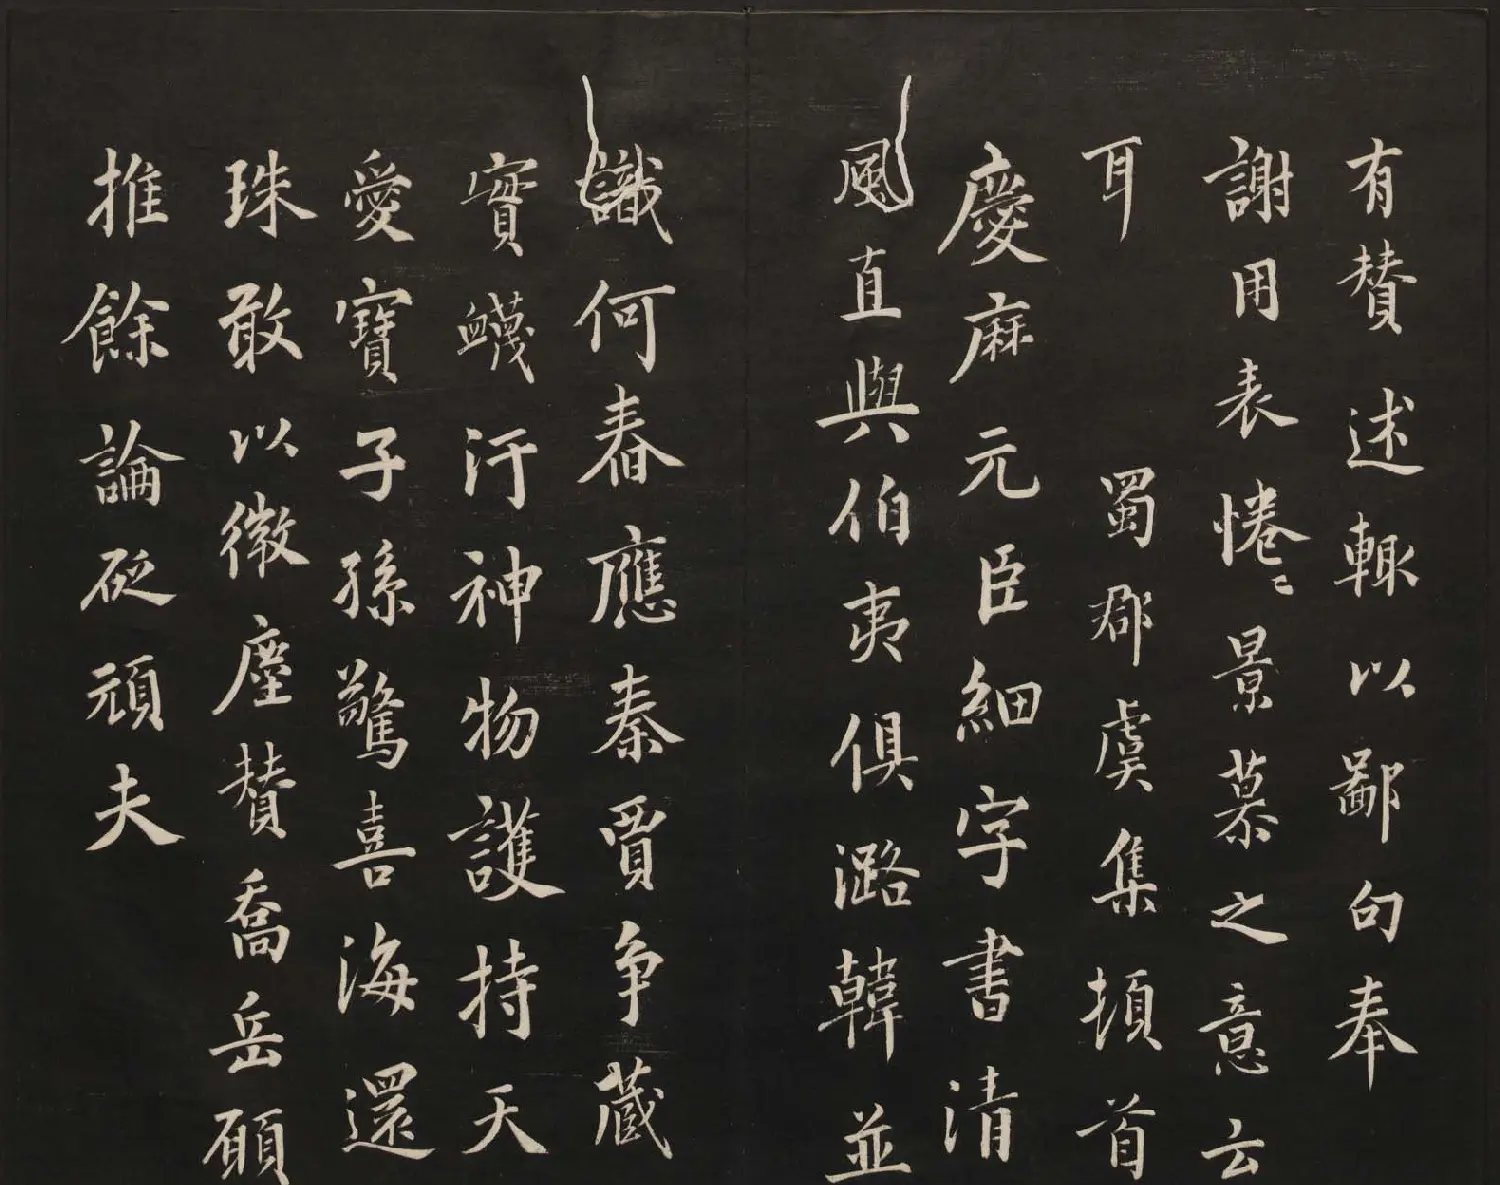 有賛述輙以鄙句奉
謝用表惓〻景慕之意云
耳 蜀郡虞集頓首
慶麻元臣細字書清
風直與伯夷俱潞韓並
識何春應秦賈争蔵
實衊汙神物護持天
愛寶子孫驚喜海還
珠敢以微塵賛喬岳願
推餘論砭頑夫